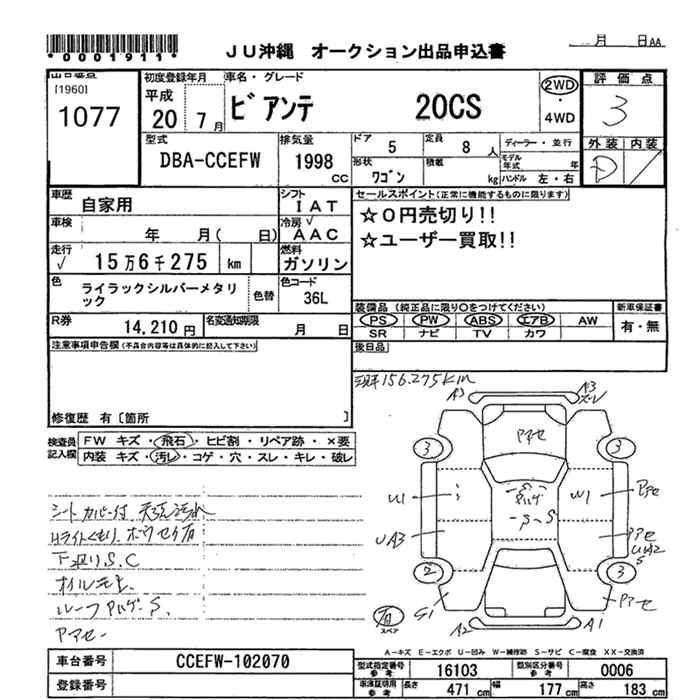 *0001911*
JU沖縄 オークション出品申込書
月 日AA
出品番号
[1960]
1077
初度登録年月
平成
20 7月
車名・グレード
ビアンテ 20CS
2WD
・
4WD
評価点
3
外装 内装
D
型式
DBA-CCEFW
排気量
1998
cc
ドア
5
定員
8 人
ディーラー・並行
形状
ワゴン
積載
kg
モデル年式 年
ハンドル 左・右
車歴
自家用
シフト
IAT
セールスポイント(正常に機能するものに限ります)
☆0円売切り!!
☆ユーザー買取!!
車検
年 月( 日)
冷房 √
AAC
走行
√ 15万6千275 km
燃料
ガソリン
色
ライラックシルバーメタリック
色替
色コード
36L
装備品 (純正品に限り○をつけてください)
PS PW ABS エアB AW
SR ナビ TV カワ
新車保証書
有・無
R券
14,210 円
名変通知期限
月 日
後日品
注意事項申告欄(不具合内容等は具体的に記入して下さい)
修復歴 有 〔箇所 〕
検査員記入欄
FW キズ・飛石・ヒビ割・リペア跡・×要
内装 キズ・汚レ・コゲ・穴・スレ・キレ・破レ
156.275km
シートカバー付
下廻りS.C
オイルモレ
ルーフアルゲ・S.
Pアセ
A3
A3
Pアセ
3
3
U1
W1
Pアセ
UA3
Pアセ
UA2
S
2
3
S1
Pアセ
A2
A1
スペア
A-キズ E-エクボ U-凹み W-補修跡 S-サビ C-腐食 XX-交換済
車台番号
CCEFW-102070
登録番号
型式指定番号
参考
16103
類別区分番号
参考
0006
車庫証明用
参考
長さ 471 cm
幅 177 cm
高さ 183 cm